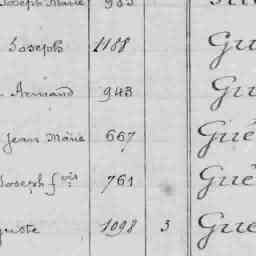 Joseph Marie
Joseph 1188 Gu
Armand 943 Gu
Jean Marie 667 Gué
Joseph fois 761 Gué
guste 1098 3 Gue